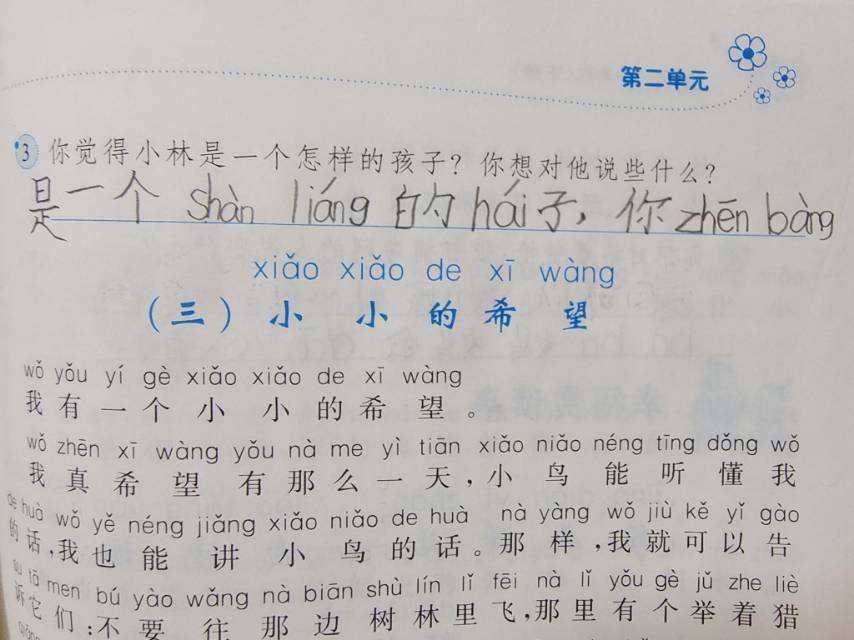 第二单元
3 你觉得小林是一个怎样的孩子？你想对他说些什么？
是一个 shàn liáng 的 hái 子，你 zhēn bàng
xiǎo xiǎo de xī wàng
（三）小 小 的 希 望
wǒ yǒu yí gè xiǎo xiǎo de xī wàng
我 有 一 个 小 小 的 希 望 。
wǒ zhēn xī wàng yǒu nà me yì tiān xiǎo niǎo néng tīng dǒng wǒ
我 真 希 望 有 那 么 一 天，小 鸟 能 听 懂 我
de huà wǒ yě néng jiǎng xiǎo niǎo de huà nà yàng wǒ jiù kě yǐ gào
的 话，我 也 能 讲 小 鸟 的 话。那 样，我 就 可 以 告
su tā men bú yào wǎng nà biān shù lín lǐ fēi nà lǐ yǒu gè jǔ zhe liè
诉 它 们：不 要 往 那 边 树 林 里 飞，那 里 有 个 举 着 猎